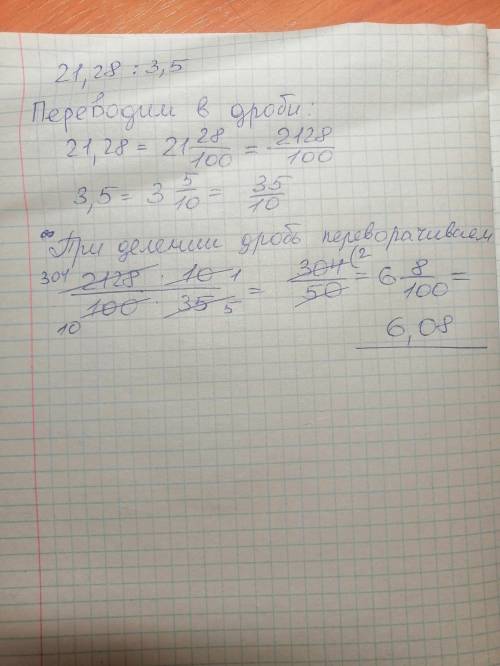 21,28 : 3,5
Переводим в дроби:
21,28 = 21 28/100 = 2128/100
3,5 = 3 5/10 = 35/10
При делении дробь переворачиваем
304 2128 · 10 1 / 10 100 · 35 5 = 304/50 (2 = 6 8/100 =
6,08